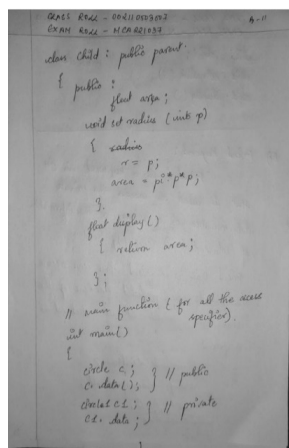 CLASS ROLL - 002110503502
EXAM ROLL - MCA221037
class Child : public parent.
{ public :
float area ;
void cet radius (int p)
{ radius
r = p;
area = pi*p*p;
}.
float display()
{ return area ;
};
// main function ( for all the access
specifier).
int main()
{
circle c ;
c. data( ); } // public
c1. data ; } // private
1